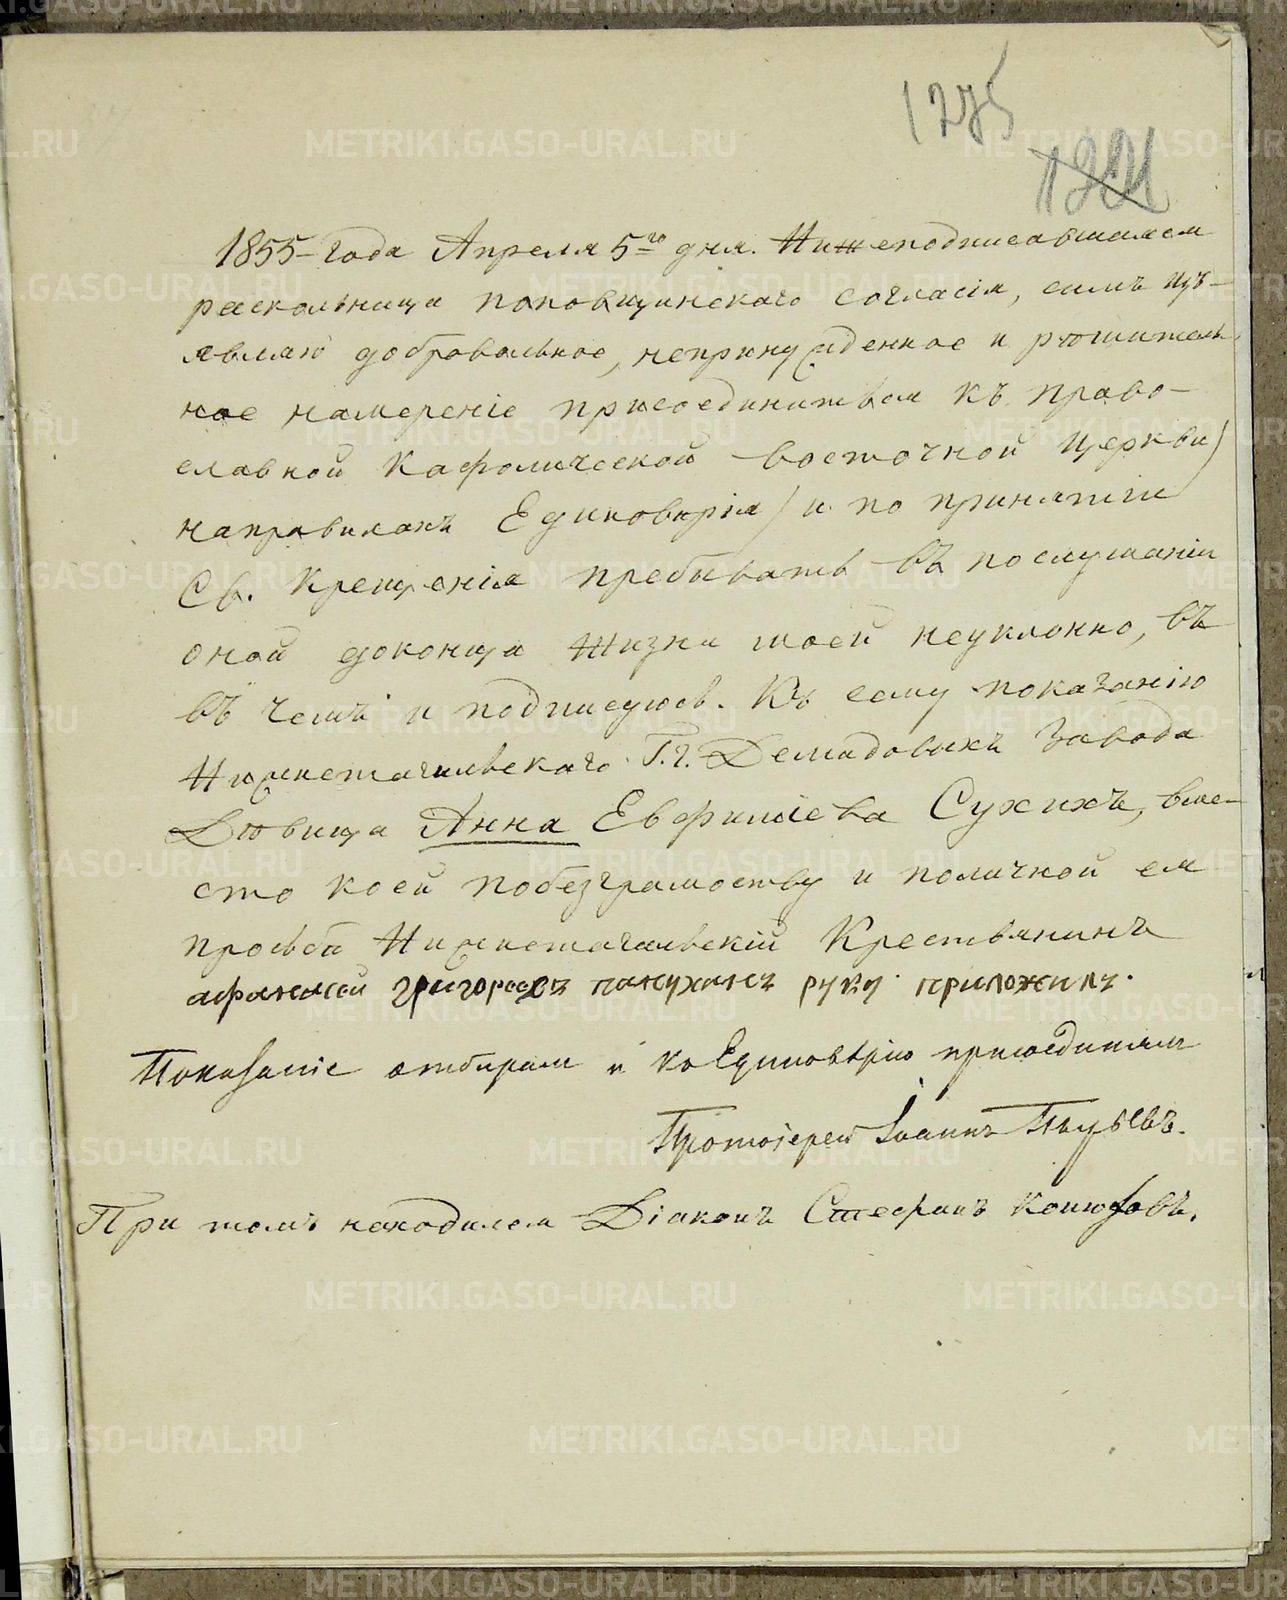 1275
1221
1855 года Апреля 5го дня. Нижеподписавшаяся
раскольница поповщинскаго согласія, симъ изъ-
являю добровольное, непринужденное и рѣшитель
ное намереніе присоединиться къ право-
славной Кафолической восточной Церкви)
направилахъ Единовѣрія) и по принятіи
Св. Крещенія пребывать въ послушаніи
оной доконца жизни моей неуклонно, въ
въ чемъ и подписуюсь. Къ сему показанію
Нижнетагильскаго Г.г. Демидовыхъ Завода
Дѣвица Анна Евфиміева Сухихъ, вме-
сто коей побезграмоству и поличной ея
прозьбѣ Нижнетагильскій Крестьянинъ
афанасей григорьевъ пануханъ руку приложилъ.
Показаніе отбирал и къ Единовѣрію присоединялъ
Протоіерей Іоаннъ Пырьевъ.
При томъ находился Діаконъ Стефанъ Конюховъ.
METRIKI.GASO-URAL.RU